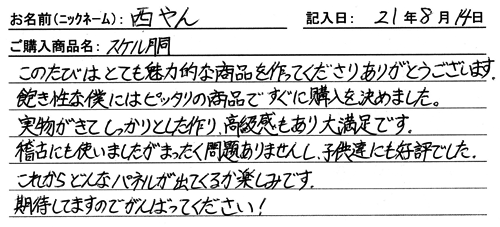 お名前(ニックネーム): 西やん 記入日: 21年8月14日
ご購入商品名: スケル胴
このたびはとても魅力的な商品を作ってくださりありがとうございます。
飽き性な僕にはピッタリの商品ですぐに購入を決めました。
実物がきてしっかりとした作り、高級感もあり大満足です。
稽古にも使いましたがまったく問題ありませんし、子供達にも好評でした。
これからどんなパネルが出てくるか楽しみです。
期待してますのでがんばってください!